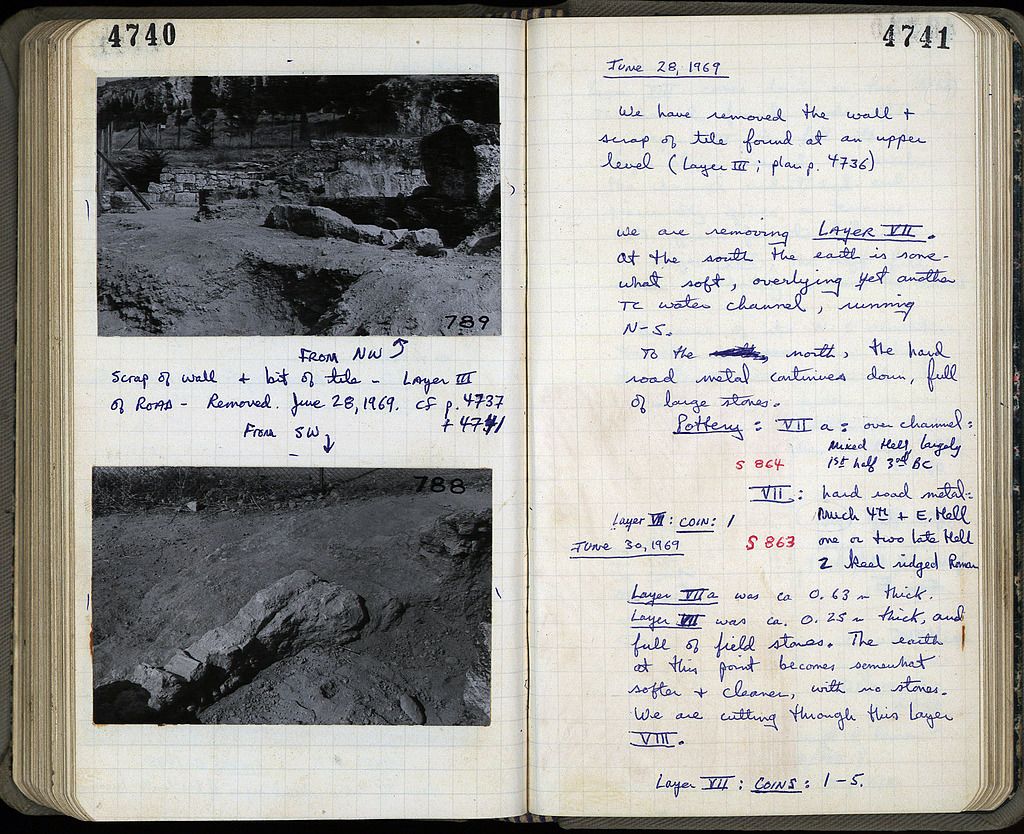 4740
789
FROM NW
Scrap of wall + bit of tile - Layer III
of ROAD - Removed. June 28, 1969. cf p. 4737
+ 4741
From SW
788
4741
June 28, 1969
We have removed the wall +
scrap of tile found at an upper
level (Layer III; plan p. 4736)
We are removing LAYER VII.
At the south the earth is some-
what soft, overlying yet another
TC water channel, running
N-S.
To the north, the hard
road metal continues down, full
of large stones.
Pottery: VII a: over channel:
Mixed Hell, largely
S 864 1st half 3rd BC
VII: hard road metal:
Much 4th + E. Hell
Layer VII: COIN: 1
S 863 one or two late Hell
June 30, 1969
2 keel ridged Roman
Layer VII a was ca 0.63 m thick.
Layer VII was ca. 0.25 m thick, and
full of field stones. The earth
at this point becomes somewhat
softer + cleaner, with no stones.
We are cutting through this Layer
VIII.
Layer VII: COINS: 1-5.